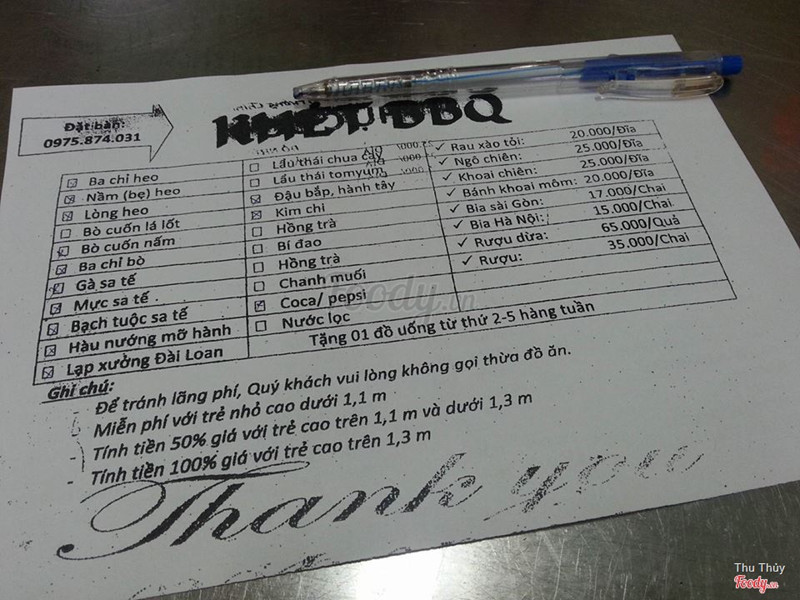 Đặt bàn:
0975.874.031
BBQ
Ba chỉ heo
Nầm (bẹ) heo
Lòng heo
Bò cuốn lá lốt
Bò cuốn nấm
Ba chỉ bò
Gà sa tế
Mực sa tế
Bạch tuộc sa tế
Hàu nướng mỡ hành
Lạp xưởng Đài Loan
Lẩu thái chua cay
Lẩu thái tomyum
Đậu bắp, hành tây
Kim chi
Hồng trà
Bí đao
Hồng trà
Chanh muối
Coca/ pepsi
Nước lọc
✓ Rau xào tỏi: 20.000/Đĩa
✓ Ngô chiên: 25.000/Đĩa
✓ Khoai chiên: 25.000/Đĩa
✓ Bánh khoai môm: 20.000/Đĩa
✓ Bia sài Gòn: 17.000/Chai
✓ Bia Hà Nội: 15.000/Chai
✓ Rượu dừa: 65.000/Quả
✓ Rượu: 35.000/Chai
Tặng 01 đồ uống từ thứ 2-5 hàng tuần
Ghi chú:
- Để tránh lãng phí, Quý khách vui lòng không gọi thừa đồ ăn.
- Miễn phí với trẻ nhỏ cao dưới 1,1 m
- Tính tiền 50% giá với trẻ cao trên 1,1 m và dưới 1,3 m
- Tính tiền 100% giá với trẻ cao trên 1,3 m
Thank you
foody.vn
Thu Thủy
Foody.vn